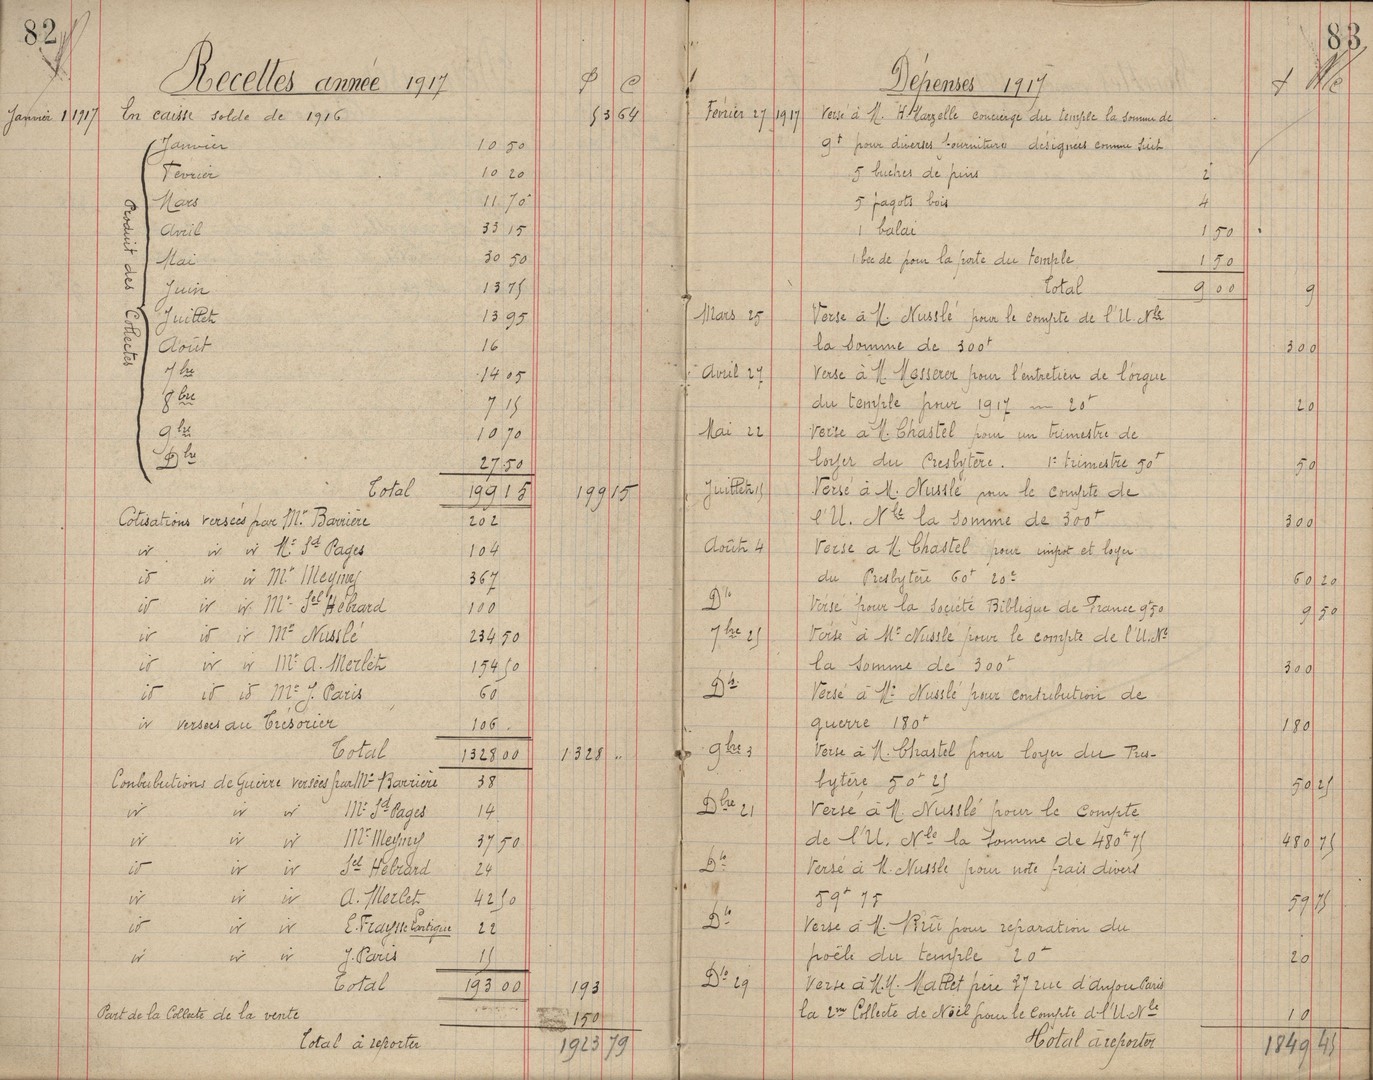 82
Recettes année 1917 f c
Janvier 1 1917 En caisse solde de 1916 53 64
Produit des Collectes
Janvier 10 50
Février 10 20
Mars 11 70
Avril 33 15
Mai 30 50
Juin 13 75
Juillet 13 95
Août 16
7bre 14 05
8bre 7 15
9bre 10 70
Dbre 27 50
Total 199 15 199 15
Cotisations versées par Mr Barrière 202
id id id Mr Sd Pages 104
id id id Mr Meyniy 367
id id id Mr Sel Hébrard 100
id id id Mr Nusslé 234 50
id id id Mr A. Merlet 154 50
id id id Mr J. Paris 60
id versées au Trésorier 106
Total 1328 00 1328 "
Contributions de Guerre versées par Mr Barrière 38
id id id Mr Sd Pages 14
id id id Mr Meyniy 37 50
id id id Sel Hébrard 24
id id id A. Merlet 42 50
id id id E. Fraysse 22
id id id J. Paris 15
Total 193 00 193
Part de la Collecte de la vente 150
Total à reporter 1923 79
83
Dépenses 1917 f c
Février 27 1917 Versé à M. Marzelle concierge du temple la somme de
9f pour diverses fournitures désignées comme suit
5 buches de pins 2
5 fagots bois 4
1 balai 1 50
1 bec de pour la porte du temple 1 50
Total 9 00 9
Mars 25 Versé à M. Nusslé pour le compte de l'U. Nle
la somme de 300f 300
Avril 27 Versé à M Messerer pour l'entretien de l'orgue
du temple pour 1917 — 20f 20
Mai 22 Versé à M. Chastel pour un trimestre de
loyer du Presbytère. 1er trimestre 50f 50
Juillet 15 Versé à M. Nusslé pour le compte de
l'U. Nle la somme de 300f 300
Août 4 Versé à M. Chastel pour impot et loyer
du Presbytère 60f 20c 60 20
Dto Versé pour la société Biblique de France 9f50 9 50
7bre 25 Versé à Mr Nusslé pour le compte de l'U. Nle
la somme de 300f 300
Dto Versé à Mr Nusslé pour contribution de
guerre 180f 180
9bre 3 Versé à M. Chastel pour loyer du Pres-
bytère 50f 25 50 25
Dbre 21 Versé à M. Nusslé pour le compte
de l'U. Nle la somme de 480f 75 480 75
Dto Versé à M. Nusslé pour note frais divers
59f 75 59 75
Dto Versé à M. pour reparation du
poêle du temple 20f 20
Dto 29 Versé à M.M. Mattet père 37 rue d'anjou Paris
la 2me Collecte de Noël pour le compte d.l'U. Nle 10
Total à reporter 1849 45